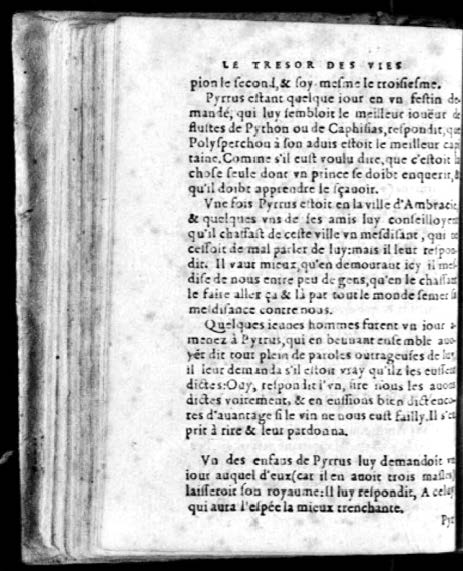 LE TRESOR DES VIES
pion le second, & soy-mesme le troisiesme.
Pyrrus estant quelque iour en vn festin de
mandé, qui luy sembloit le meilleur ioüeur de
flustes de Python ou de Caphisias, respondit, que
Polysperchon à son aduis estoit le meilleur cap
taine. Comme s'il eust voulu dire, que c'estoit la
chose seule dont vn prince se doibt enquerir, &
qu'il doibt apprendre le sçauoir.
Vne fois Pyrrus estoit en la ville d'Ambracie
& quelques vns de ses amis luy conseilloyent
qu'il chassast de ceste ville vn mesdisant, qui ne
cessoit de mal parler de luy: mais il leur respon-
dit. Il vaut mieux, qu'en demourant icy il mes-
dise de nous entre peu de gens, qu'en le chassant
le faire aller ça & là par tout le monde semer sa
mesdisance contre nous.
Quelques ieunes hommes furent vn iour a-
menez à Pyrrus, qui en beuuant ensemble auo-
yët dit tout plein de paroles outrageuses de luy,
il leur demanda s'il estoit vray qu'ilz les eussent
dictes: Ouy, respondit l'vn, sire nous les auons
dictes voirement, & en eussions bien dict enco-
res d'auantage si le vin ne nous eust failly. Il s'en
prit à rire & leur pardonna.
Vn des enfans de Pyrrus luy demandoit vn
iour auquel d'eux (car il en auoit trois masles)
laisseroit son royaume: Il luy respondit, A celuy
qui aura l'espée la mieux trenchante.
Pyr